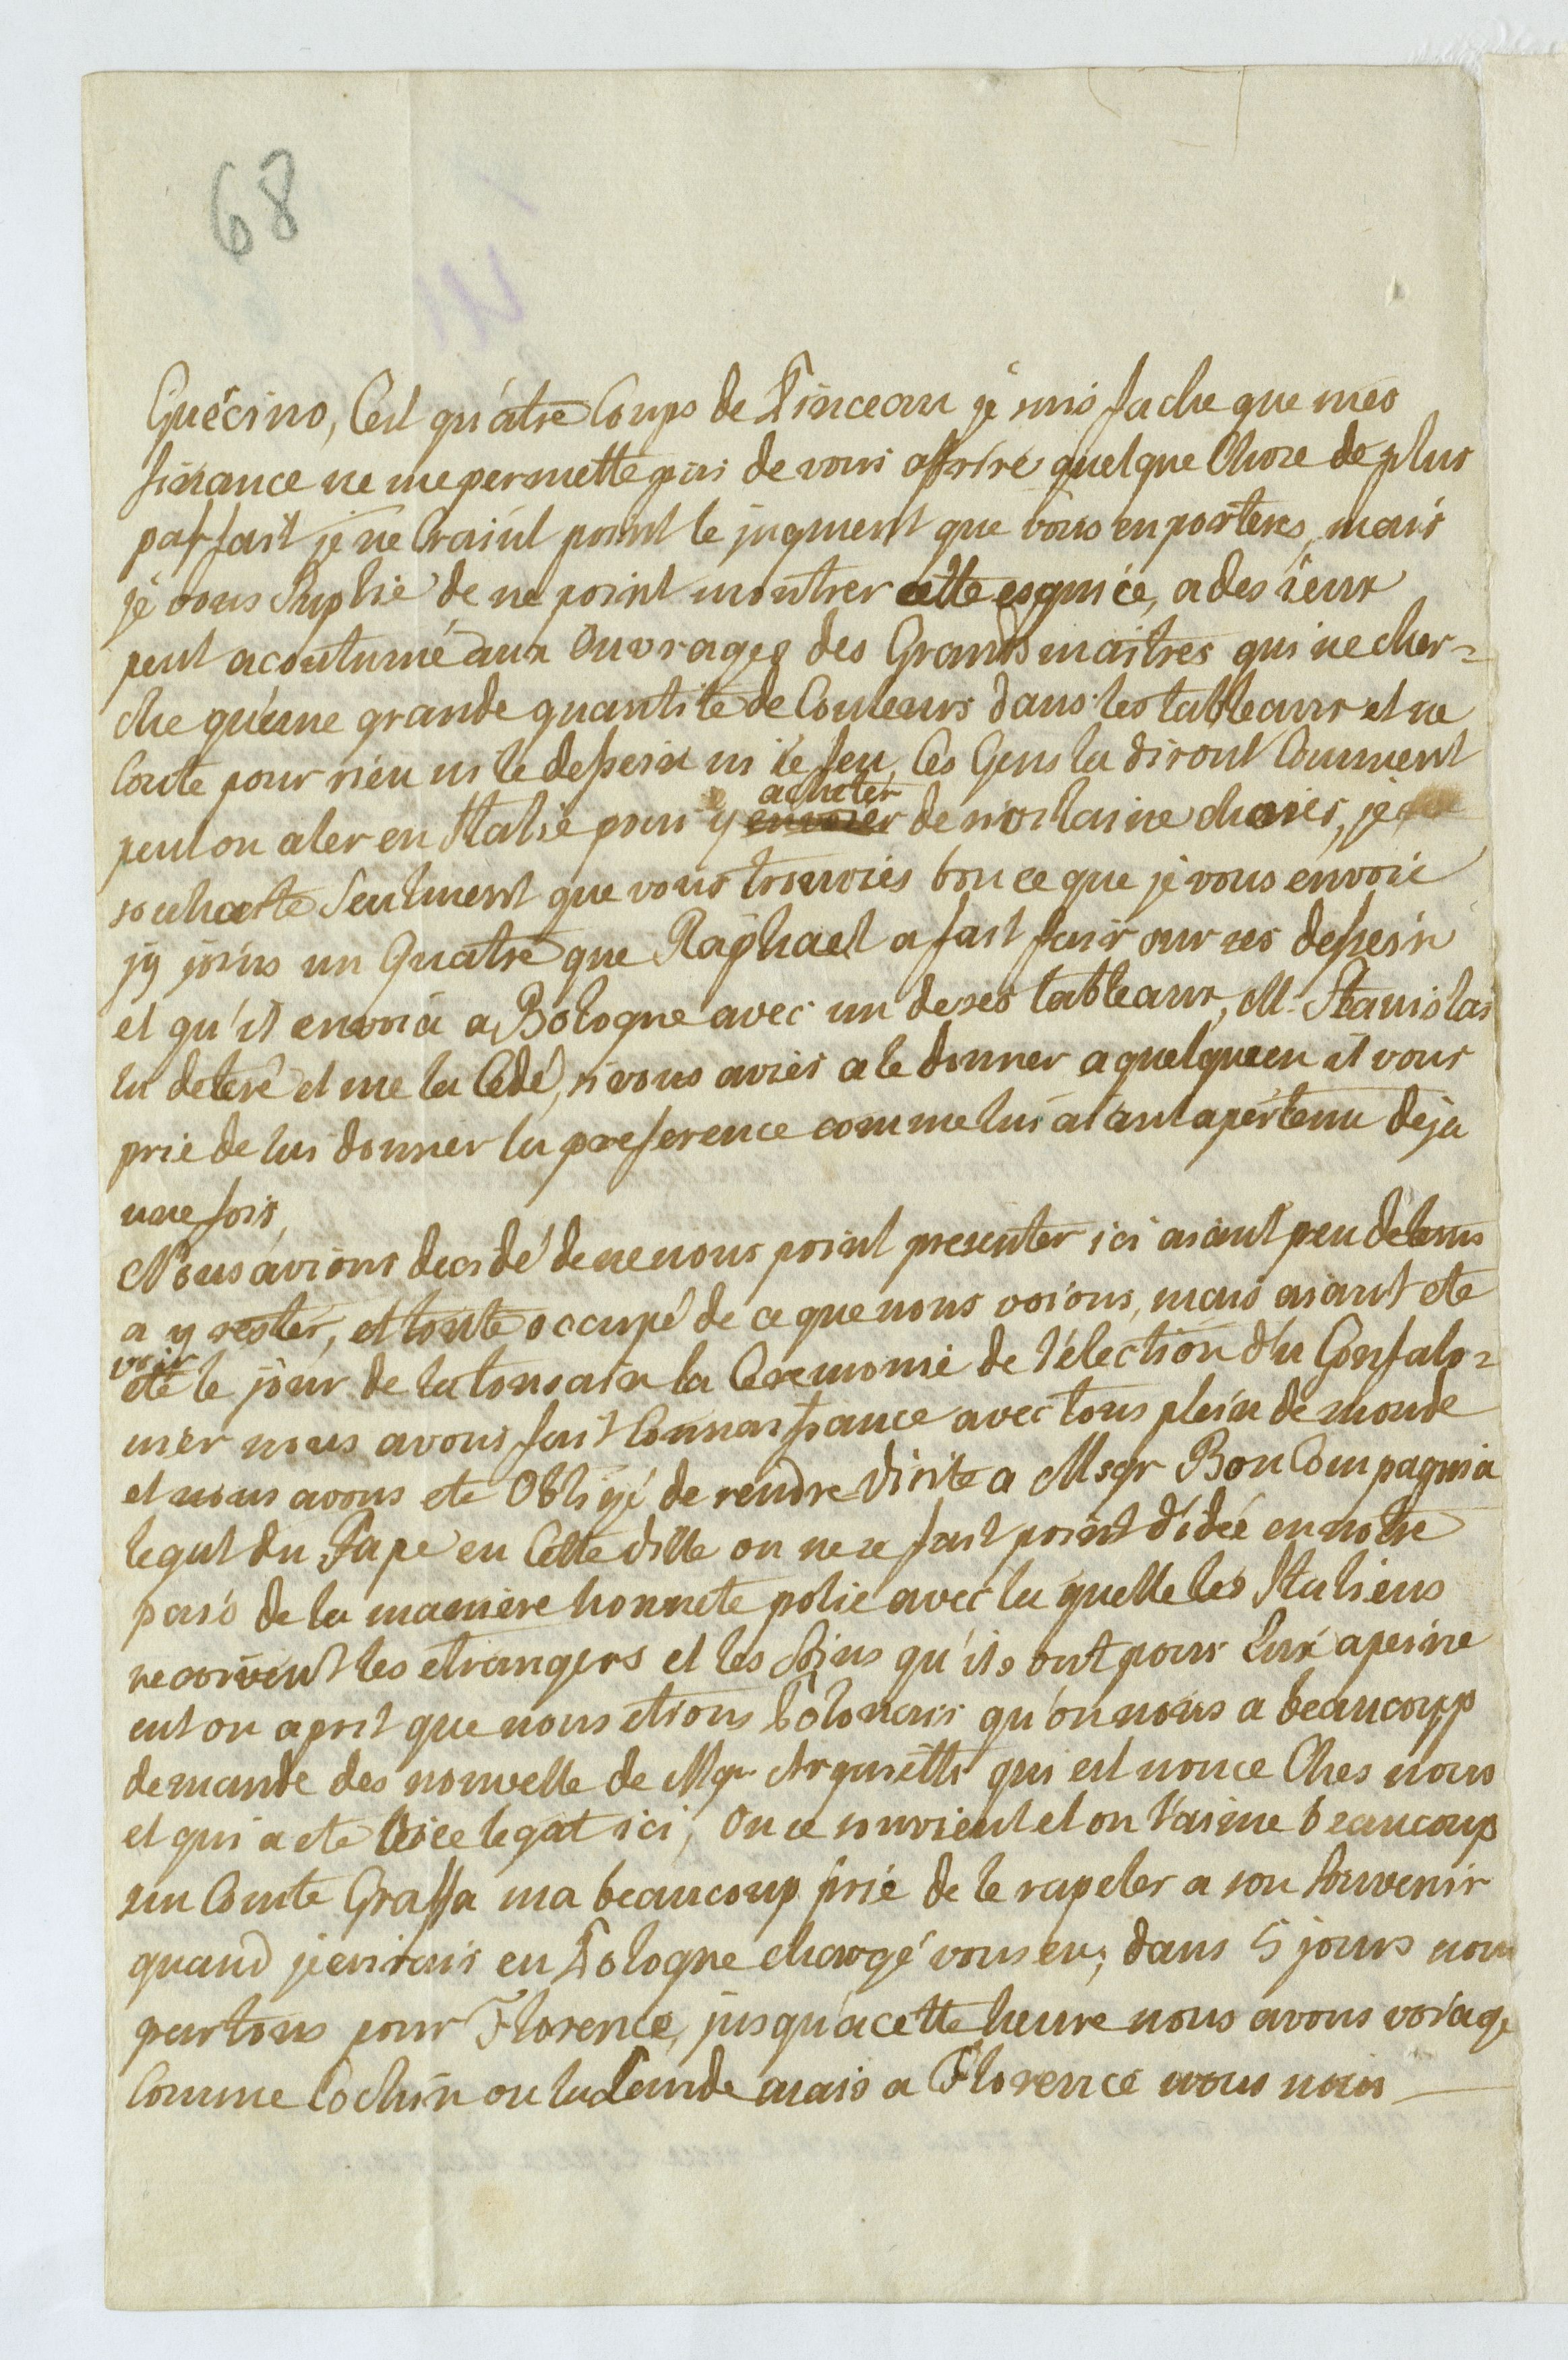 68
Guécino, C'est quátre Coups de Pinceau je suis fache que mes
finance ne me permette pas de vous offrire quelque Choze de plus
parfait je ne Craint point le jugment que vous en porteres, mais
je vous Suplie de ne point montrer cette esquice, a des ieux
peut acoutumé aux Ouvrages des Grands maitres qui ne cher=
che qu'eune grande quantite de Couleurs dans les tableaux et ne
Conte pour rien ni le dessein ni le feu, Ces Gens la diront Comment
peut on aler en Italie pour y envoier acheter de si vilaine choses, je
souhaette Seulment que vous trouvies bon ce que je vous envoie
jy joins un Quatre que Raphael a fait fair sur ses dessein
et qu'il envoia a Bologne avec un de ses tableaux, M. Stanislas
la deteré et me la Cedé, si vous avies a le donner a quelqueun il vous
prie de lui donner la preference comme lui aiant apertenu deja
une fois,
Nous avions decidé de ne nous point presenter ici aiant peu de tems
a y rester, et toute occupé de ce que nous voions, mais aiant ete
voir
eté le jour de la tousain la Ceremonie de l'élection du Gonfalo=
nier nous avons fait Connaissance avec tous plein de monde
et nous avons ete Obligé de rendre Visite a Msgr BonCompagnia
legat du Pape en Cette Ville on ne se fait point d'idée en notre
pais de la maniere honnete polie avec la quelle les Italiens
recoivent les etrangers et les Soins qu'ils ont pour Eux apeine
eut on aprit que nous etions Polonais qu'on nous a beaucoup
demande des nouvelle de Mgr Arquietti qui est nonce Ches nous
et qui a ete Vice legat ici, On ce souvient et on l'aime beaucoup
un Comte Grassa ma beaucoup prié de le rapeler a son Souvenir
quand jecrirais en Pologne chargé vous en; dans 5 jours nous
partons pour Florence, jusqu'a cette heure nous avons voiage
Comme Cochin ou la Lande mais a Florence nous nous